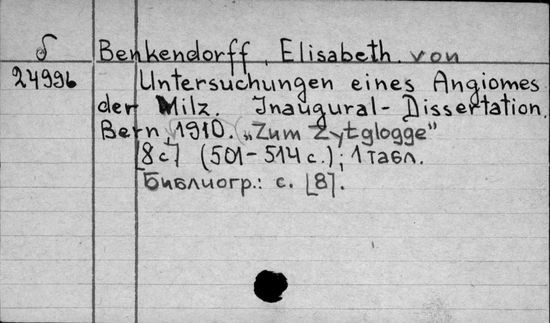 б Benkendorff, Elisabeth von
24996 Untersuchungen eines Angiomes
der Milz. Inaugural-Dissertation.
Bern, 1910. „Zum Zytglogge"
[8c] (501-514 c.); 1 табл.
Библиогр.: с. [8].